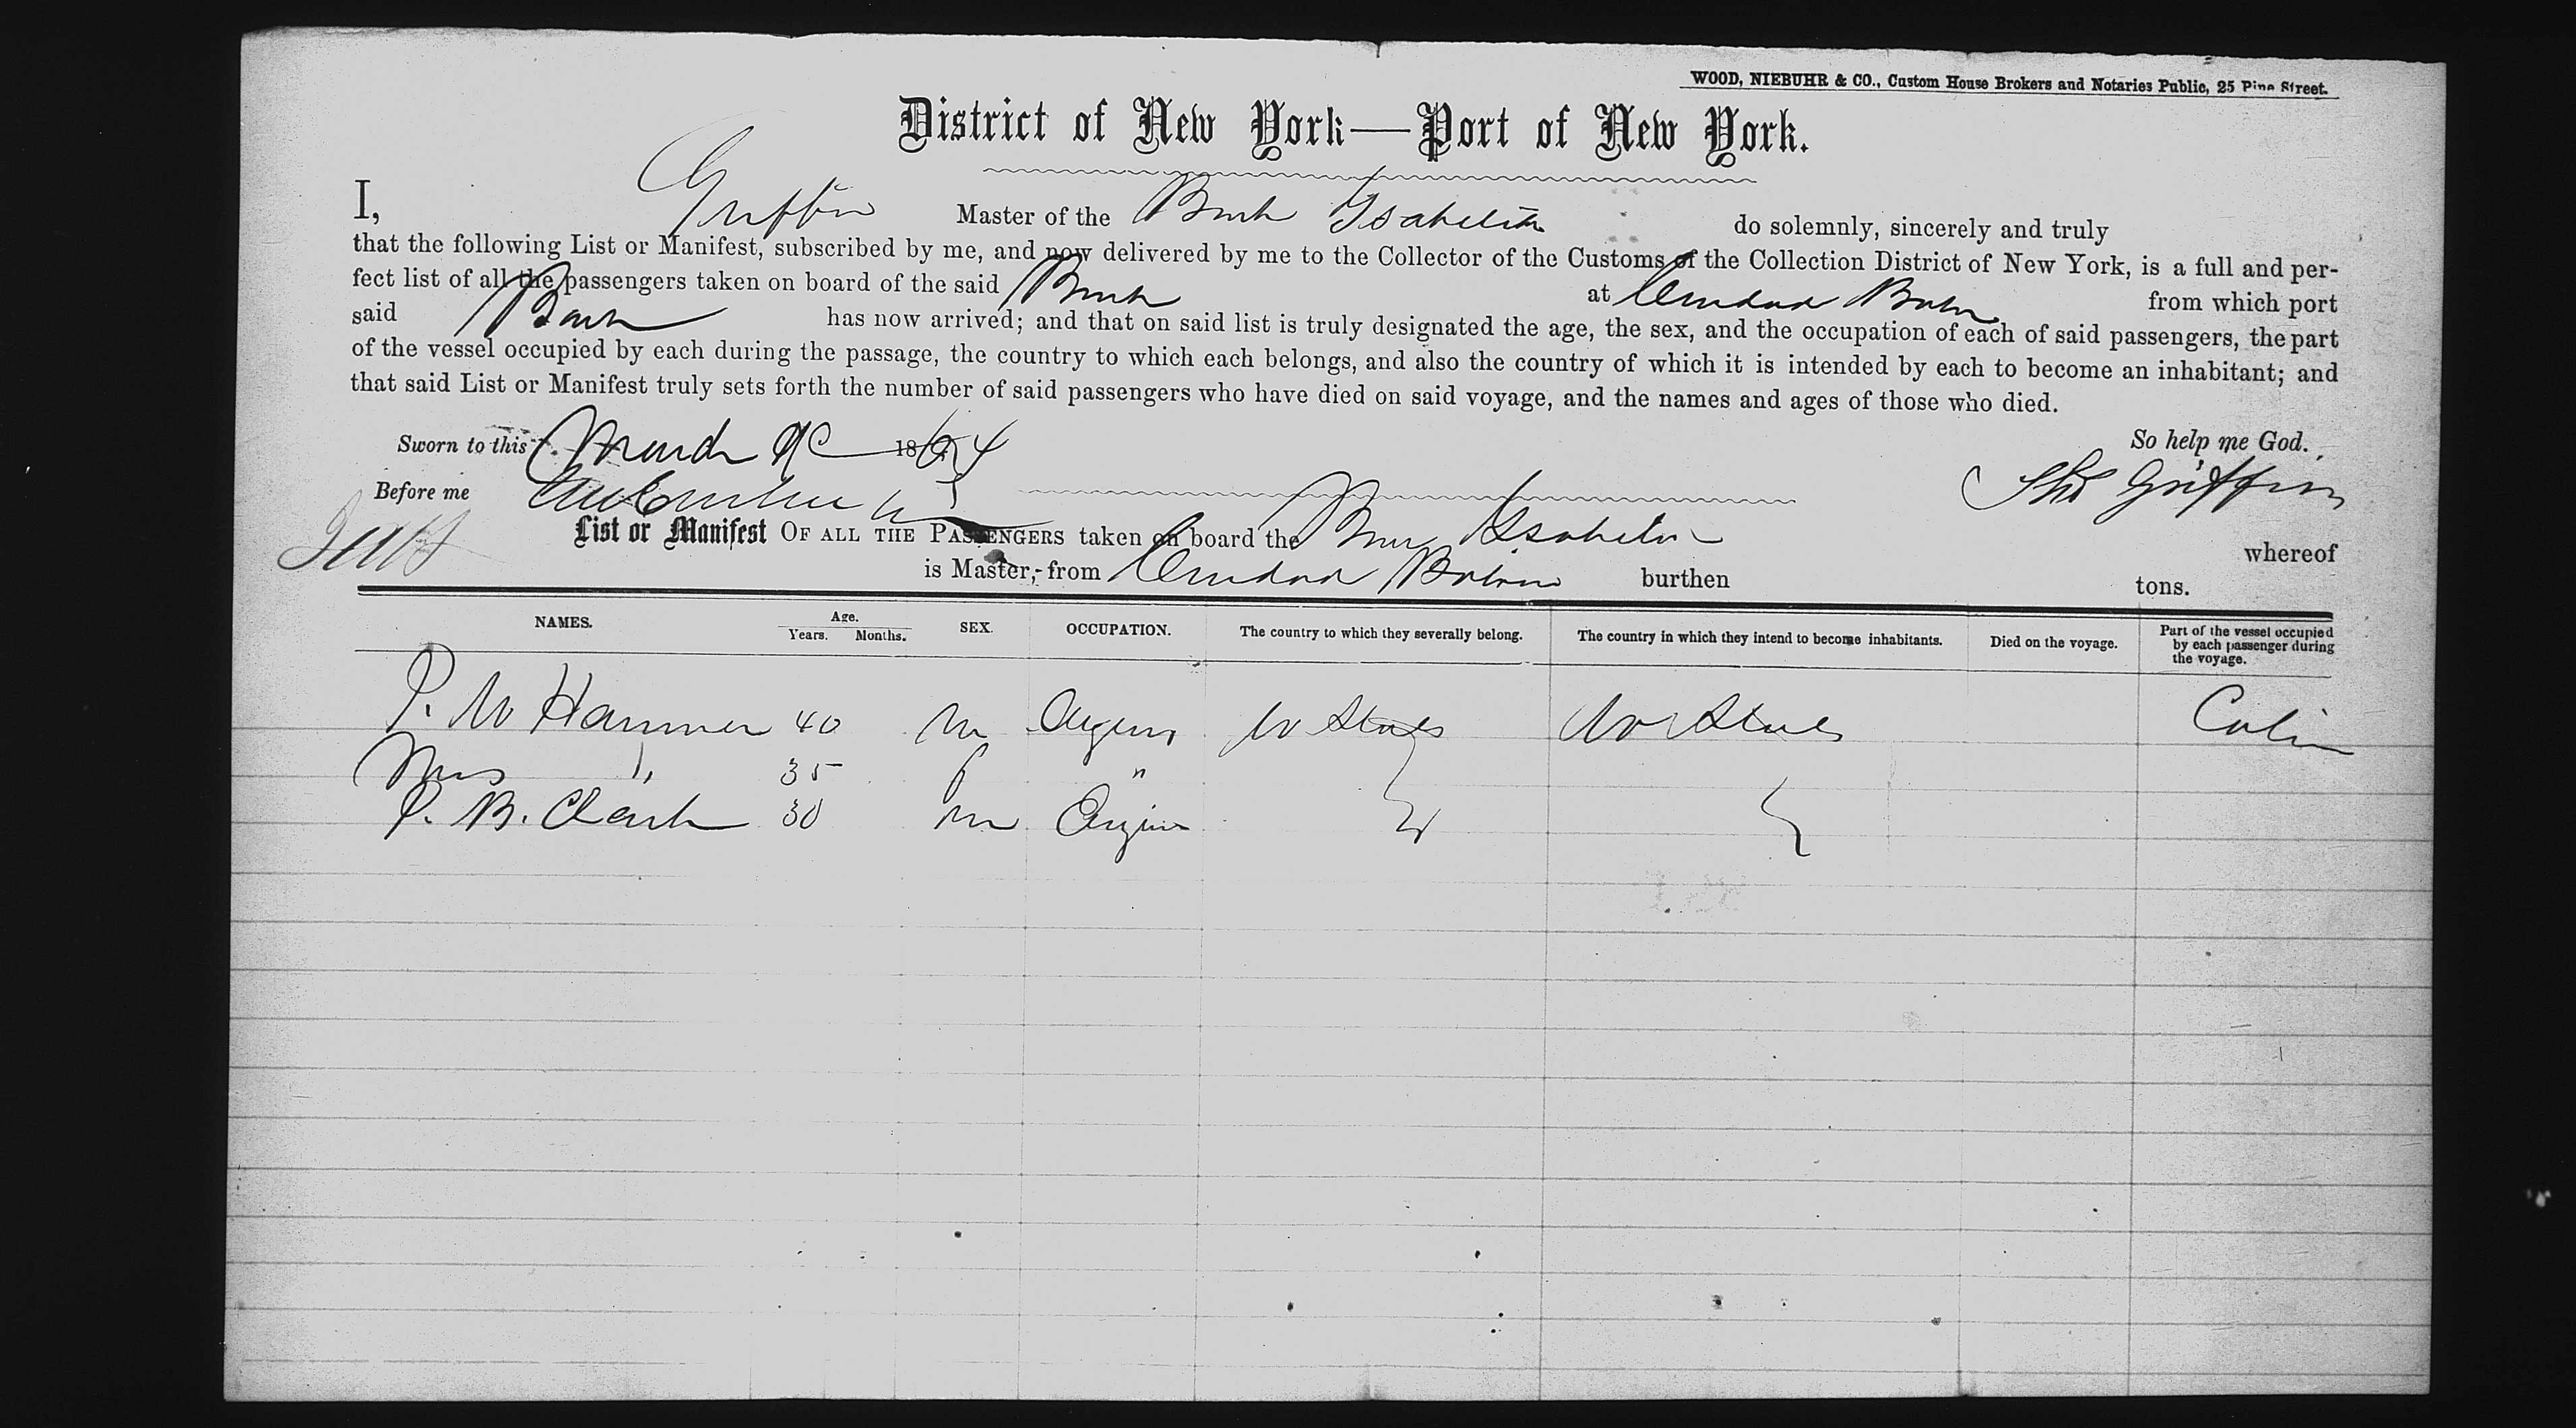 WOOD, NIEBUHR & CO., Custom House Brokers and Notaries Public, 25 Pine Street.
District of New York—Port of New York.
I, Griffin Master of the Bark Isabella do solemnly, sincerely and truly
that the following List or Manifest, subscribed by me, and now delivered by me to the Collector of the Customs of the Collection District of New York, is a full and per-
fect list of all the passengers taken on board of the said Bark at Ciudad from which port
said Bark has now arrived; and that on said list is truly designated the age, the sex, and the occupation of each of said passengers, the part
of the vessel occupied by each during the passage, the country to which each belongs, and also the country of which it is intended by each to become an inhabitant; and
that said List or Manifest truly sets forth the number of said passengers who have died on said voyage, and the names and ages of those who died.
Sworn to this March 186 4 So help me God.
Before me Griffin
List or Manifest OF ALL THE PASSENGERS taken on board the whereof
is Master, from Ciudad burthen tons.
NAMES. Age. Years. Months. SEX. OCCUPATION. The country to which they severally belong. The country in which they intend to become inhabitants. Died on the voyage. Part of the vessel occupied by each passenger during the voyage.
P. W Hammer 40 m U States U States Cabin
Mrs " 35 f "
P. B. Clark 30 m